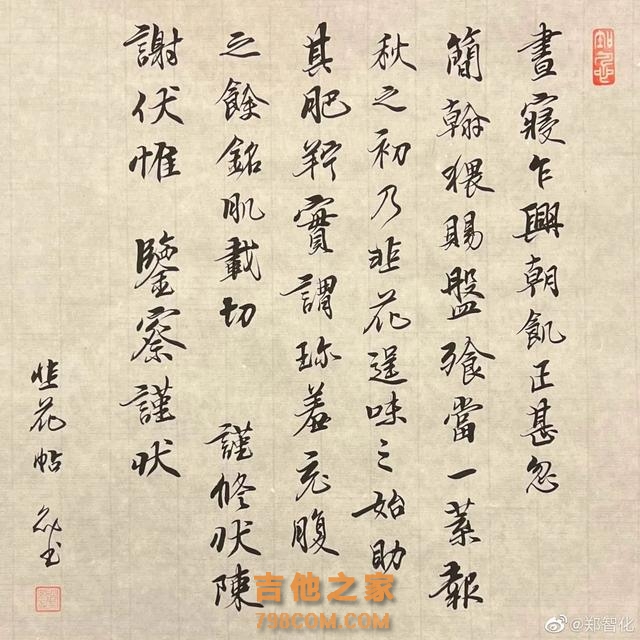 晝寢乍興朝飢正甚忽
簡翰猥賜盤飧當一葉報
秋之初乃韭花逞味之始助
其肥羜實謂珍羞充腹
之餘銘肌載切 謹修狀陳
謝伏惟 鑒察謹狀
韭花帖
吉他之家
798COM.COM
@郑智化